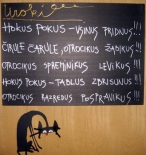 Uroki
HOKUS POKUS – VSINUS PRIDNUS!!!
ČIRULE ČARULE, OTROCIKUS ŽADIKUS!
OTROCIKUS SPREMINIKUS LEVIKUS!
HOKUS POKUS – TABLUS ZBRISUNUS!
OTROCIKUS RAZREDUS POSPRAVIKUS!